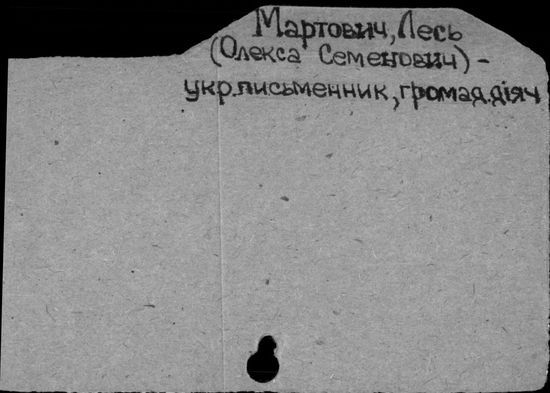 Мартович, Лесь
(Олекса Семенович) -
укр. письменник, громад. діяч